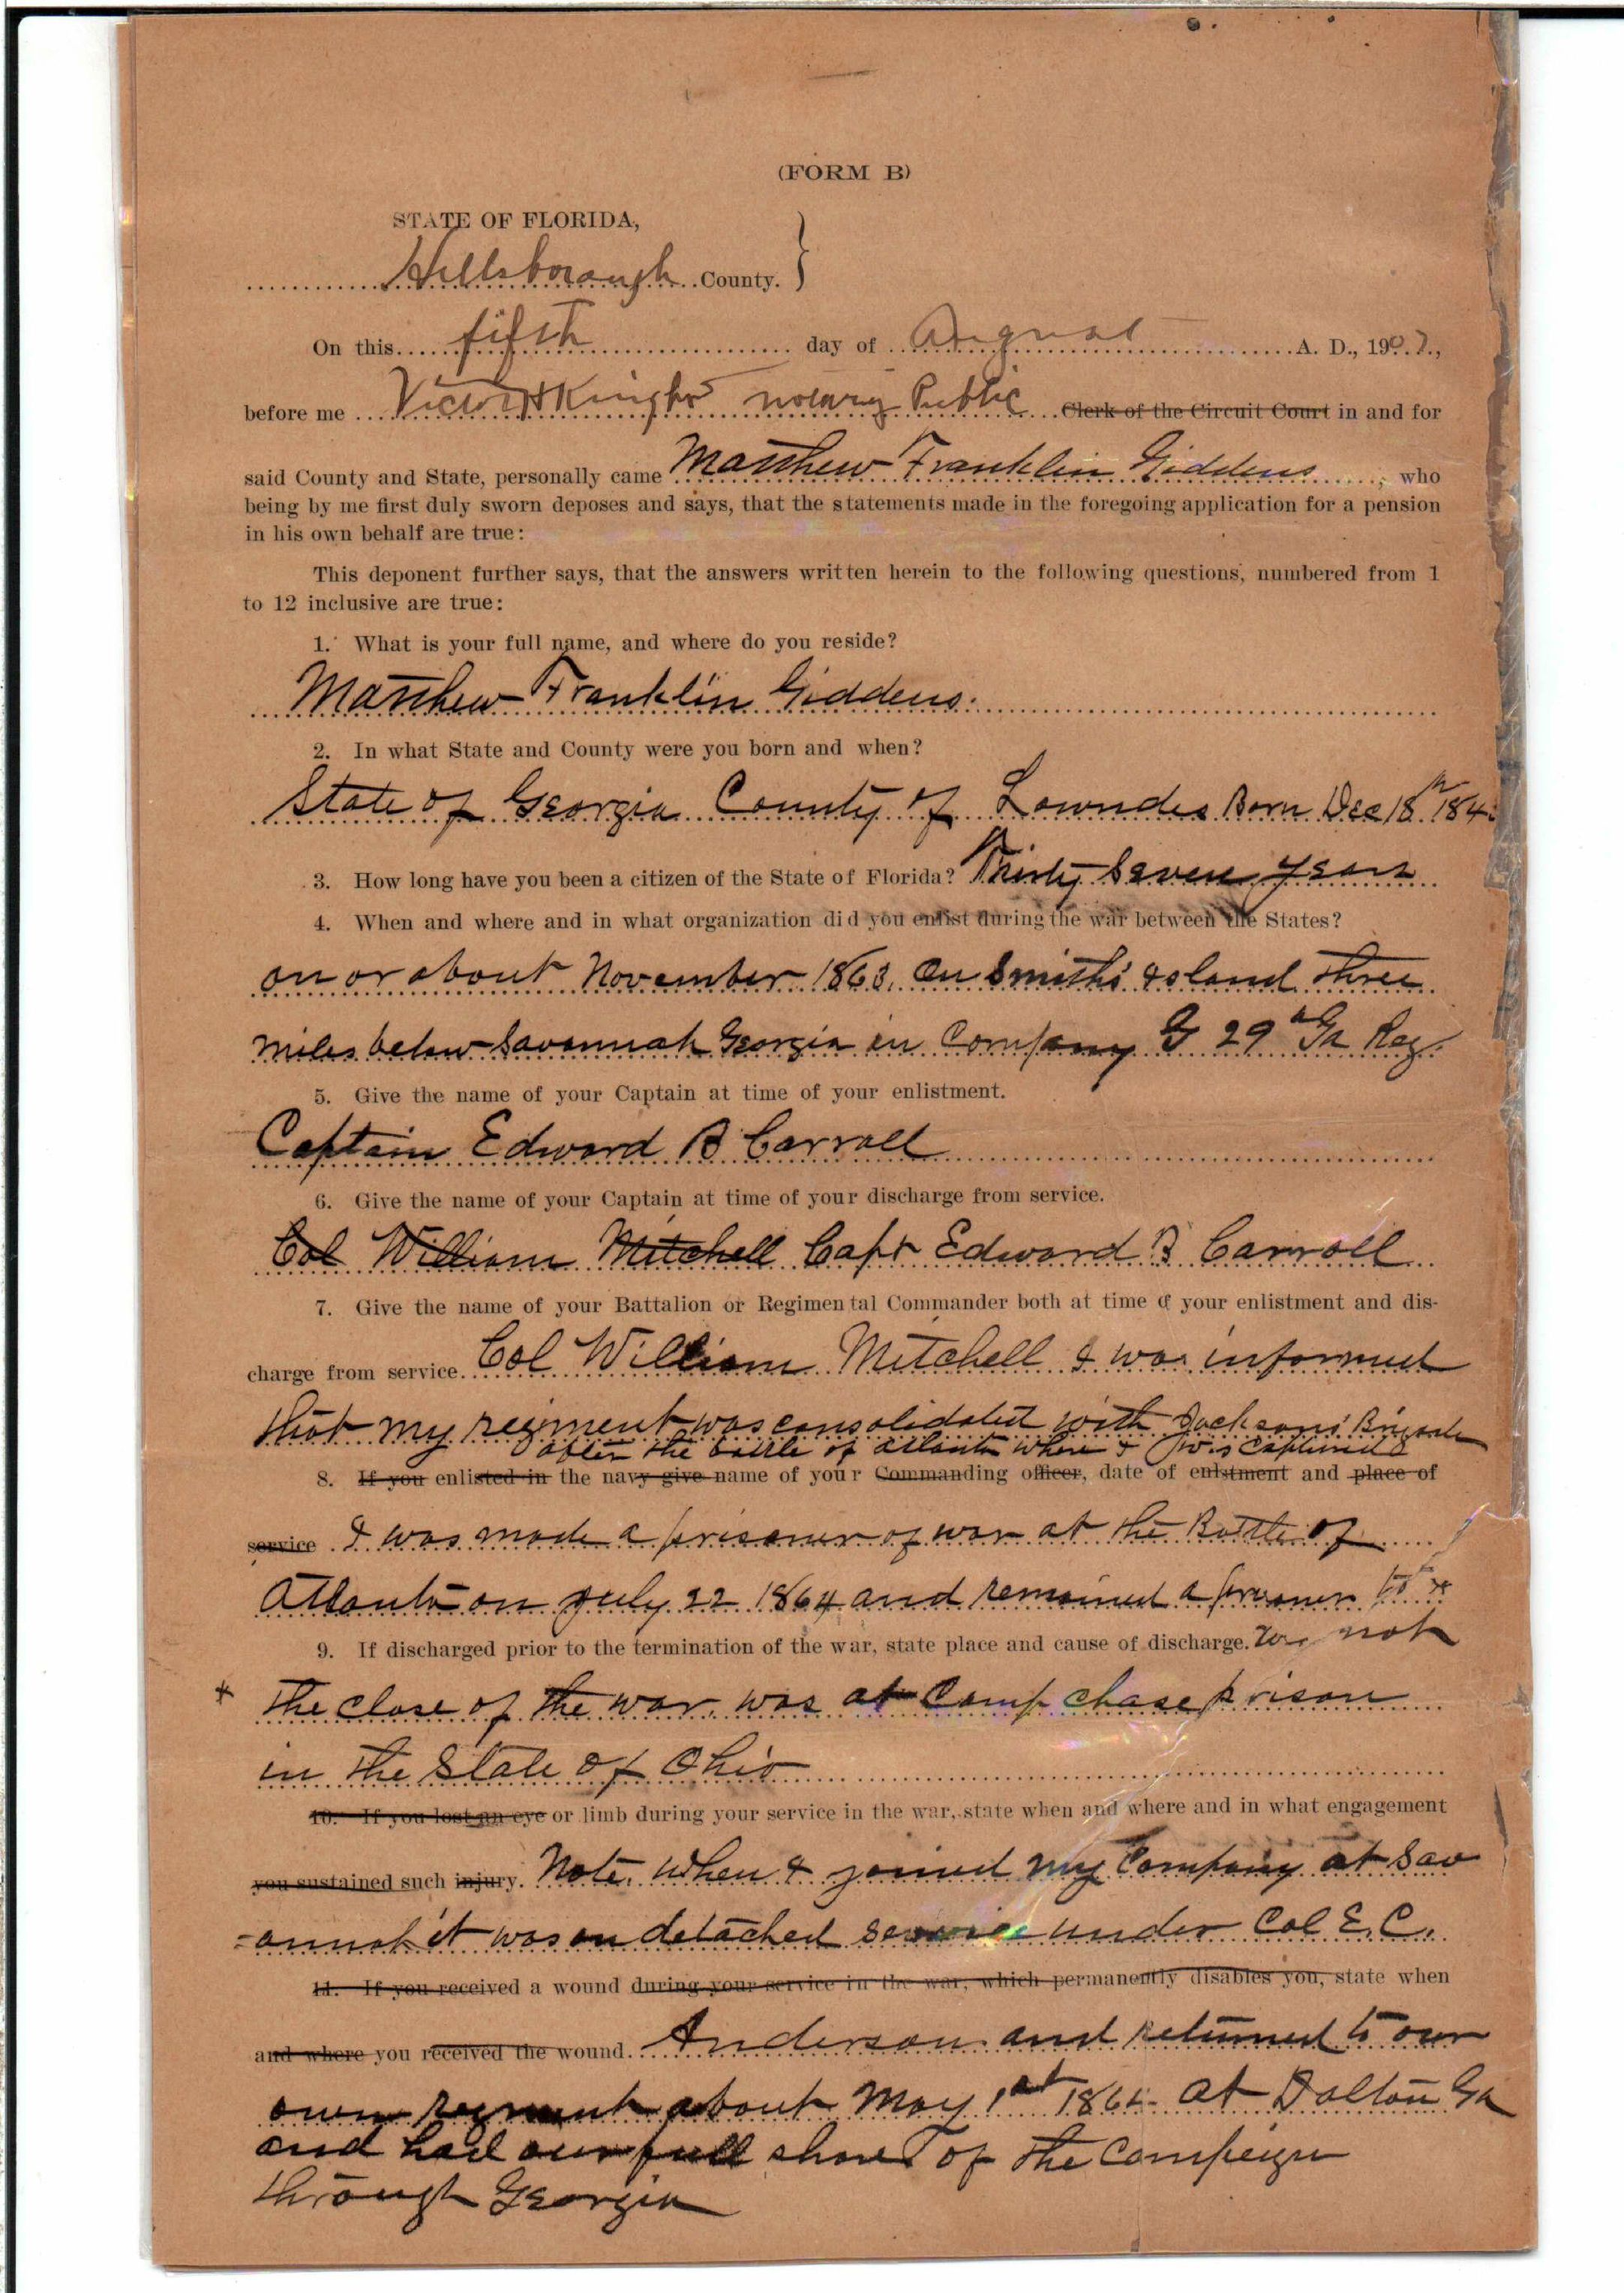 (FORM B)
STATE OF FLORIDA,
Hillsborough County.
On this fifth day of August A. D., 1907,
before me Victor H Knight notary Public Clerk of the Circuit Court in and for
said County and State, personally came Matthew Franklin Giddens, who
being by me first duly sworn deposes and says, that the statements made in the foregoing application for a pension
in his own behalf are true:
This deponent further says, that the answers written herein to the following questions, numbered from 1
to 12 inclusive are true:
1. What is your full name, and where do you reside?
Matthew Franklin Giddens.
2. In what State and County were you born and when?
State of Georgia County of Lowndes Born Dec 18th 184
3. How long have you been a citizen of the State of Florida? Thirty Seven years
4. When and where and in what organization did you enlist during the war between the States?
on or about November 1863. On Smith's Island three
miles below Savannah Georgia in Company G 29th Ga Reg.
5. Give the name of your Captain at time of your enlistment.
Captain Edward B Carroll
6. Give the name of your Captain at time of your discharge from service.
Col William Mitchell Capt Edward B Carroll
7. Give the name of your Battalion or Regimental Commander both at time of your enlistment and dis-
charge from service. Col William Mitchell I was informed
that my regiment was consolidated with Jacksons Brigade
after the battle of Atlanta where I was captured
8. If you enlisted in the navy give name of your Commanding officer, date of enlstment and place of
service I was made a prisoner of war at the Battle of
Atlanta on July 22 1864 and remained a prisoner to *
9. If discharged prior to the termination of the war, state place and cause of discharge. was not
* the close of the war. was at Camp chase prison
in the State of Ohio
10. If you lost an eye or limb during your service in the war, state when and where and in what engagement
you sustained such injury. Note. When I joined my Company at Sav
-annah it was on detached service under Col E. C.
11. If you received a wound during your service in the war, which permanently disables you, state when
and where you received the wound. Anderson and returned to our
own regiment about May 1st 1864 at Dalton Ga
and had our full share of the Campeign
through Georgia